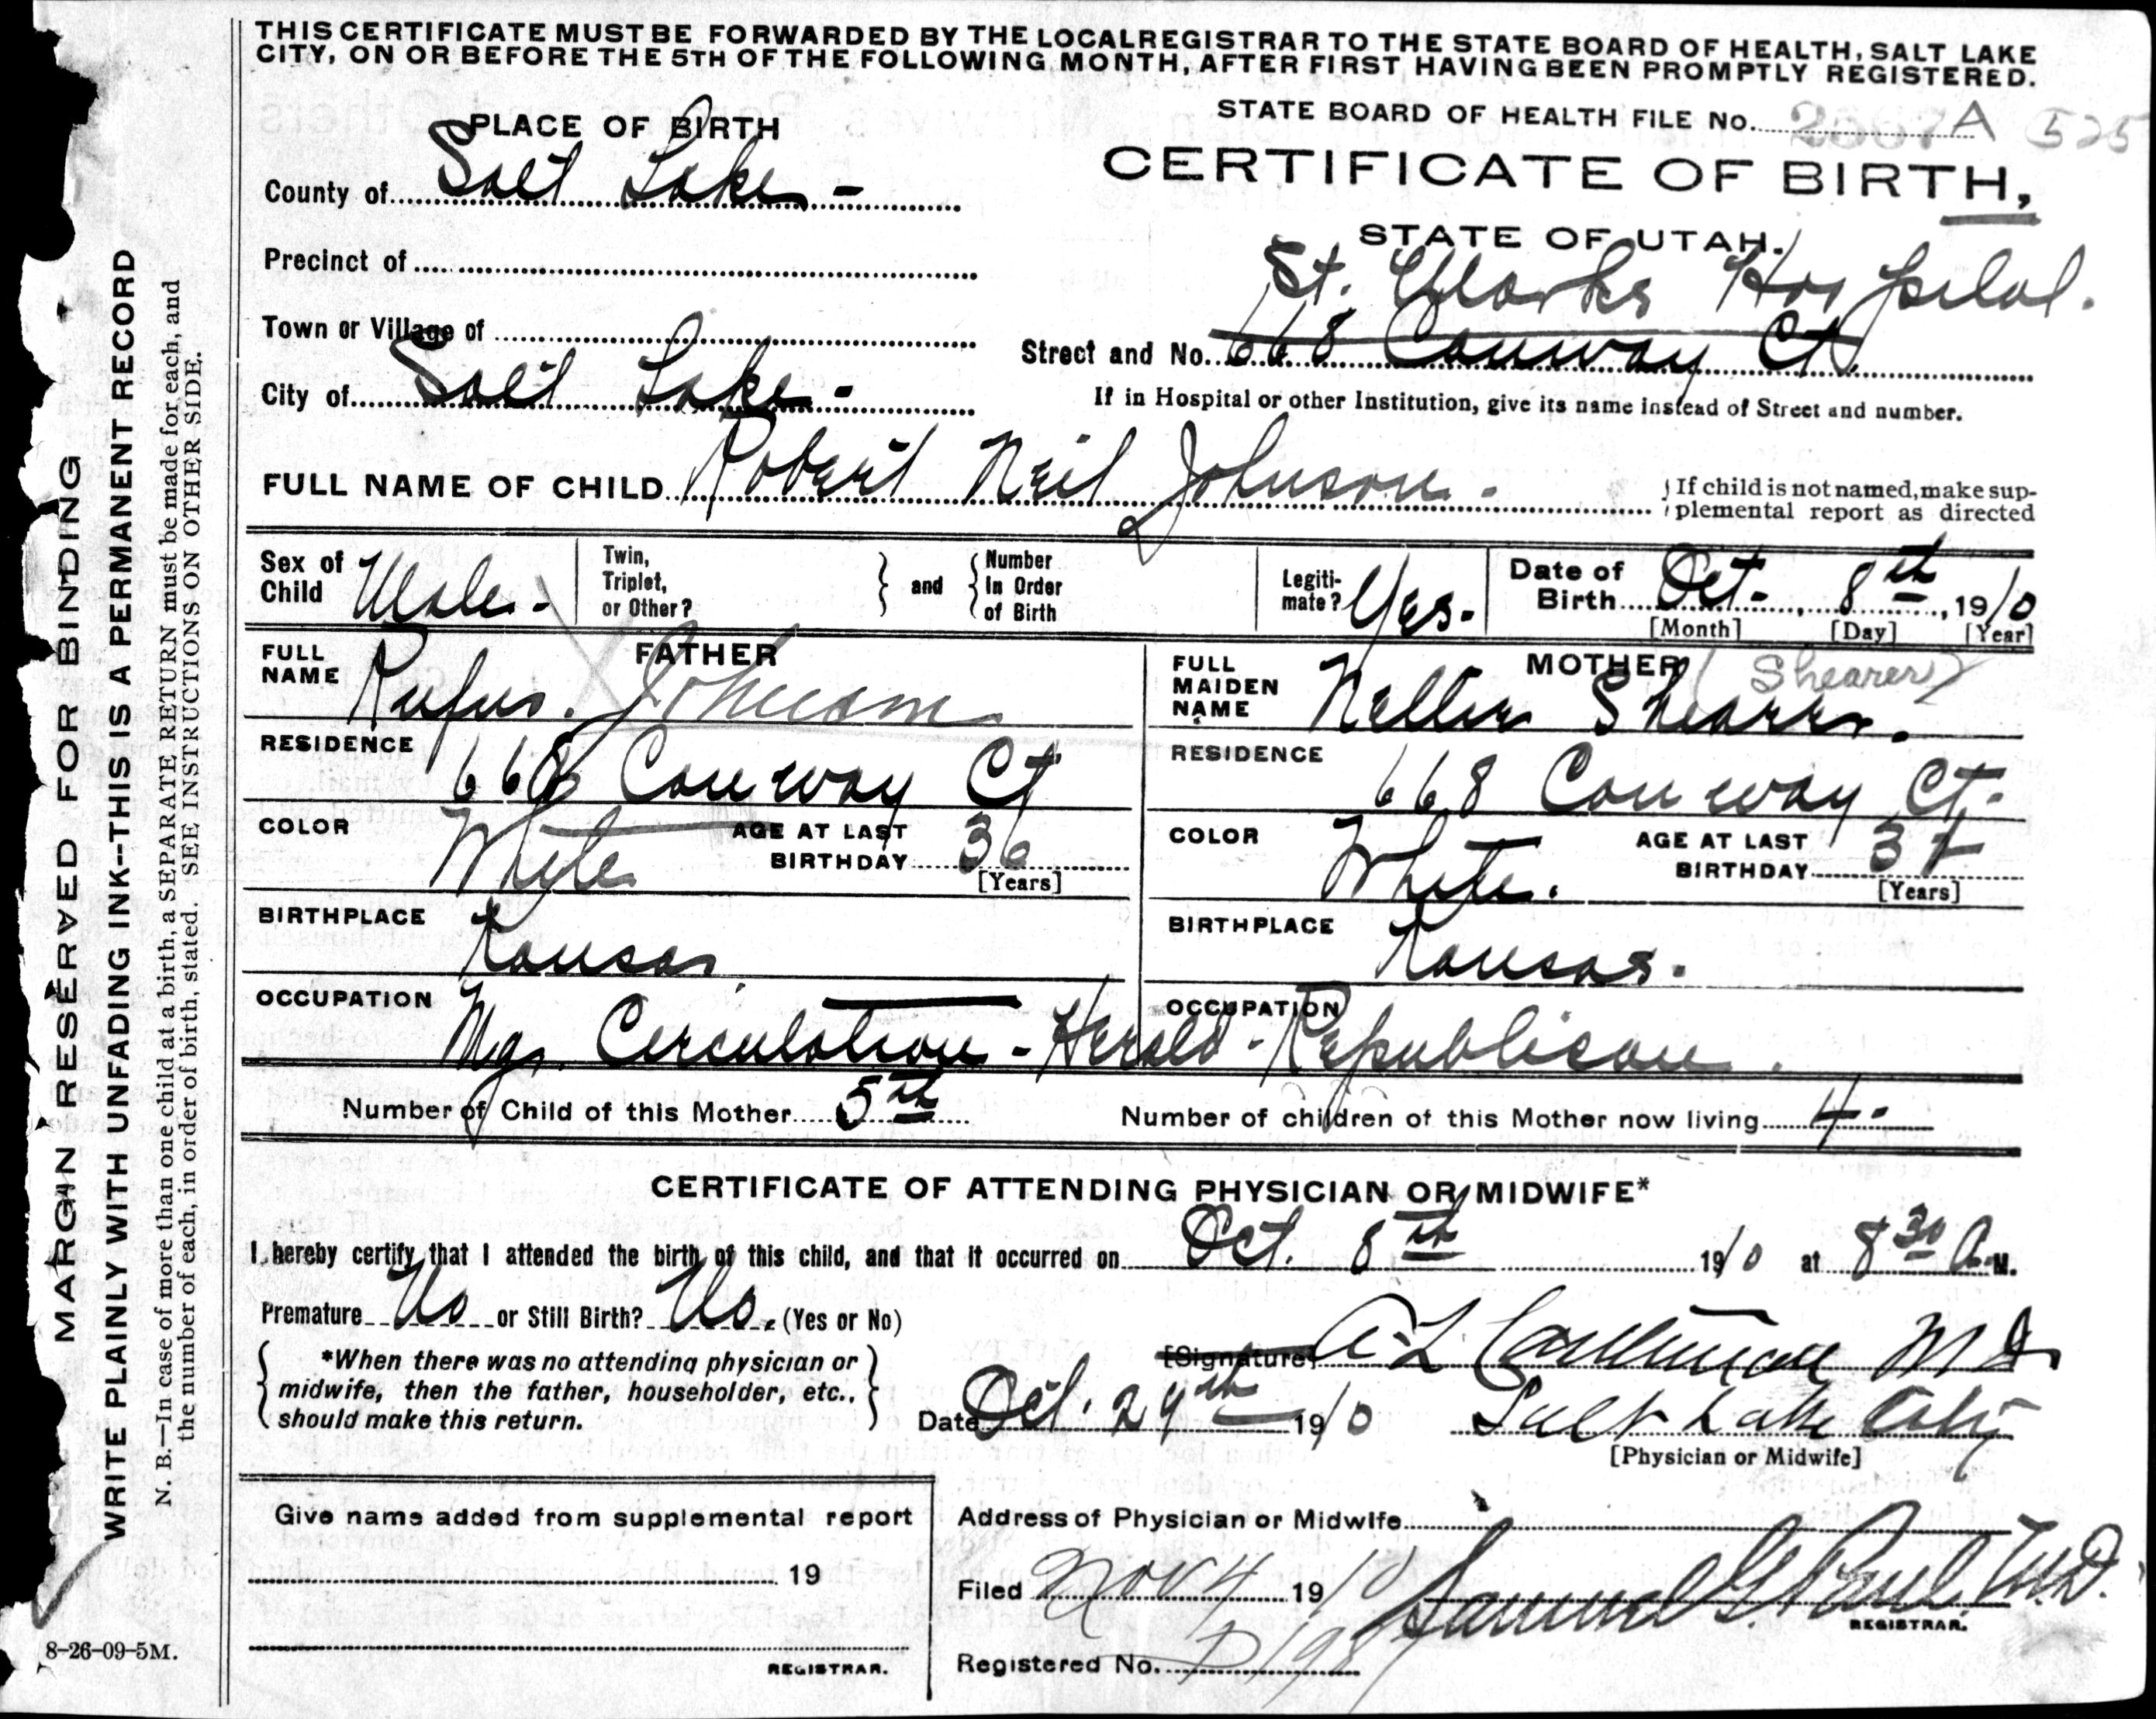 THIS CERTIFICATE MUST BE FORWARDED BY THE LOCAL REGISTRAR TO THE STATE BOARD OF HEALTH, SALT LAKE
CITY, ON OR BEFORE THE 5TH OF THE FOLLOWING MONTH, AFTER FIRST HAVING BEEN PROMPTLY REGISTERED.
STATE BOARD OF HEALTH FILE No. A 525
PLACE OF BIRTH
CERTIFICATE OF BIRTH,
STATE OF UTAH.
County of Salt Lake -
Precinct of
St. Marks Hospital.
Town or Village of
Street and No. 668 Conway Ct.
City of Salt Lake -
If in Hospital or other Institution, give its name instead of Street and number.
FULL NAME OF CHILD Robert Neil Johnson. { If child is not named, make sup-
plemental report as directed
Sex of Child Male - Twin, Triplet, or Other? } and { Number In Order of Birth Legiti-mate? Yes. Date of Birth Oct. 8th, 1910
[Month] [Day] [Year]
FATHER
FULL NAME Rufus. Johnson
MOTHER (Shearer)
FULL MAIDEN NAME Nellie Shearer.
RESIDENCE 668 Conway Ct
RESIDENCE 668 Conway Ct.
COLOR White AGE AT LAST BIRTHDAY 36 [Years]
COLOR White. AGE AT LAST BIRTHDAY 37 [Years]
BIRTHPLACE Kansas
BIRTHPLACE Kansas.
OCCUPATION Mgr. Circulation - Herald - Republican.
OCCUPATION
Number of Child of this Mother 5th Number of children of this Mother now living 4 -
CERTIFICATE OF ATTENDING PHYSICIAN OR MIDWIFE*
I hereby certify that I attended the birth of this child, and that it occurred on Oct. 8th 1910 at 8 30 A. M.
Premature No or Still Birth? No. (Yes or No)
[Signature] M D
*When there was no attending physician or
midwife, then the father, householder, etc.,
should make this return.
Date Oct. 29th 1910 Salt Lake City
[Physician or Midwife]
Give name added from supplemental report
19
REGISTRAR.
Address of Physician or Midwife
Filed Nov 4 1910 Samuel G. Paul, M.D.
REGISTRAR.
Registered No.
MARGIN RESERVED FOR BINDING
WRITE PLAINLY WITH UNFADING INK--THIS IS A PERMANENT RECORD
N. B.—In case of more than one child at a birth, a SEPARATE RETURN must be made for each, and
the number of each, in order of birth, stated. SEE INSTRUCTIONS ON OTHER SIDE.
8-26-09-5M.